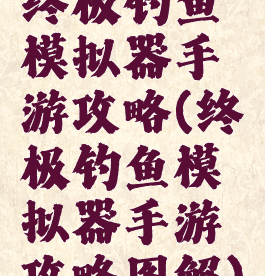 终极钓鱼
模拟器手
游攻略(终
极钓鱼模
拟器手游
攻略图解)